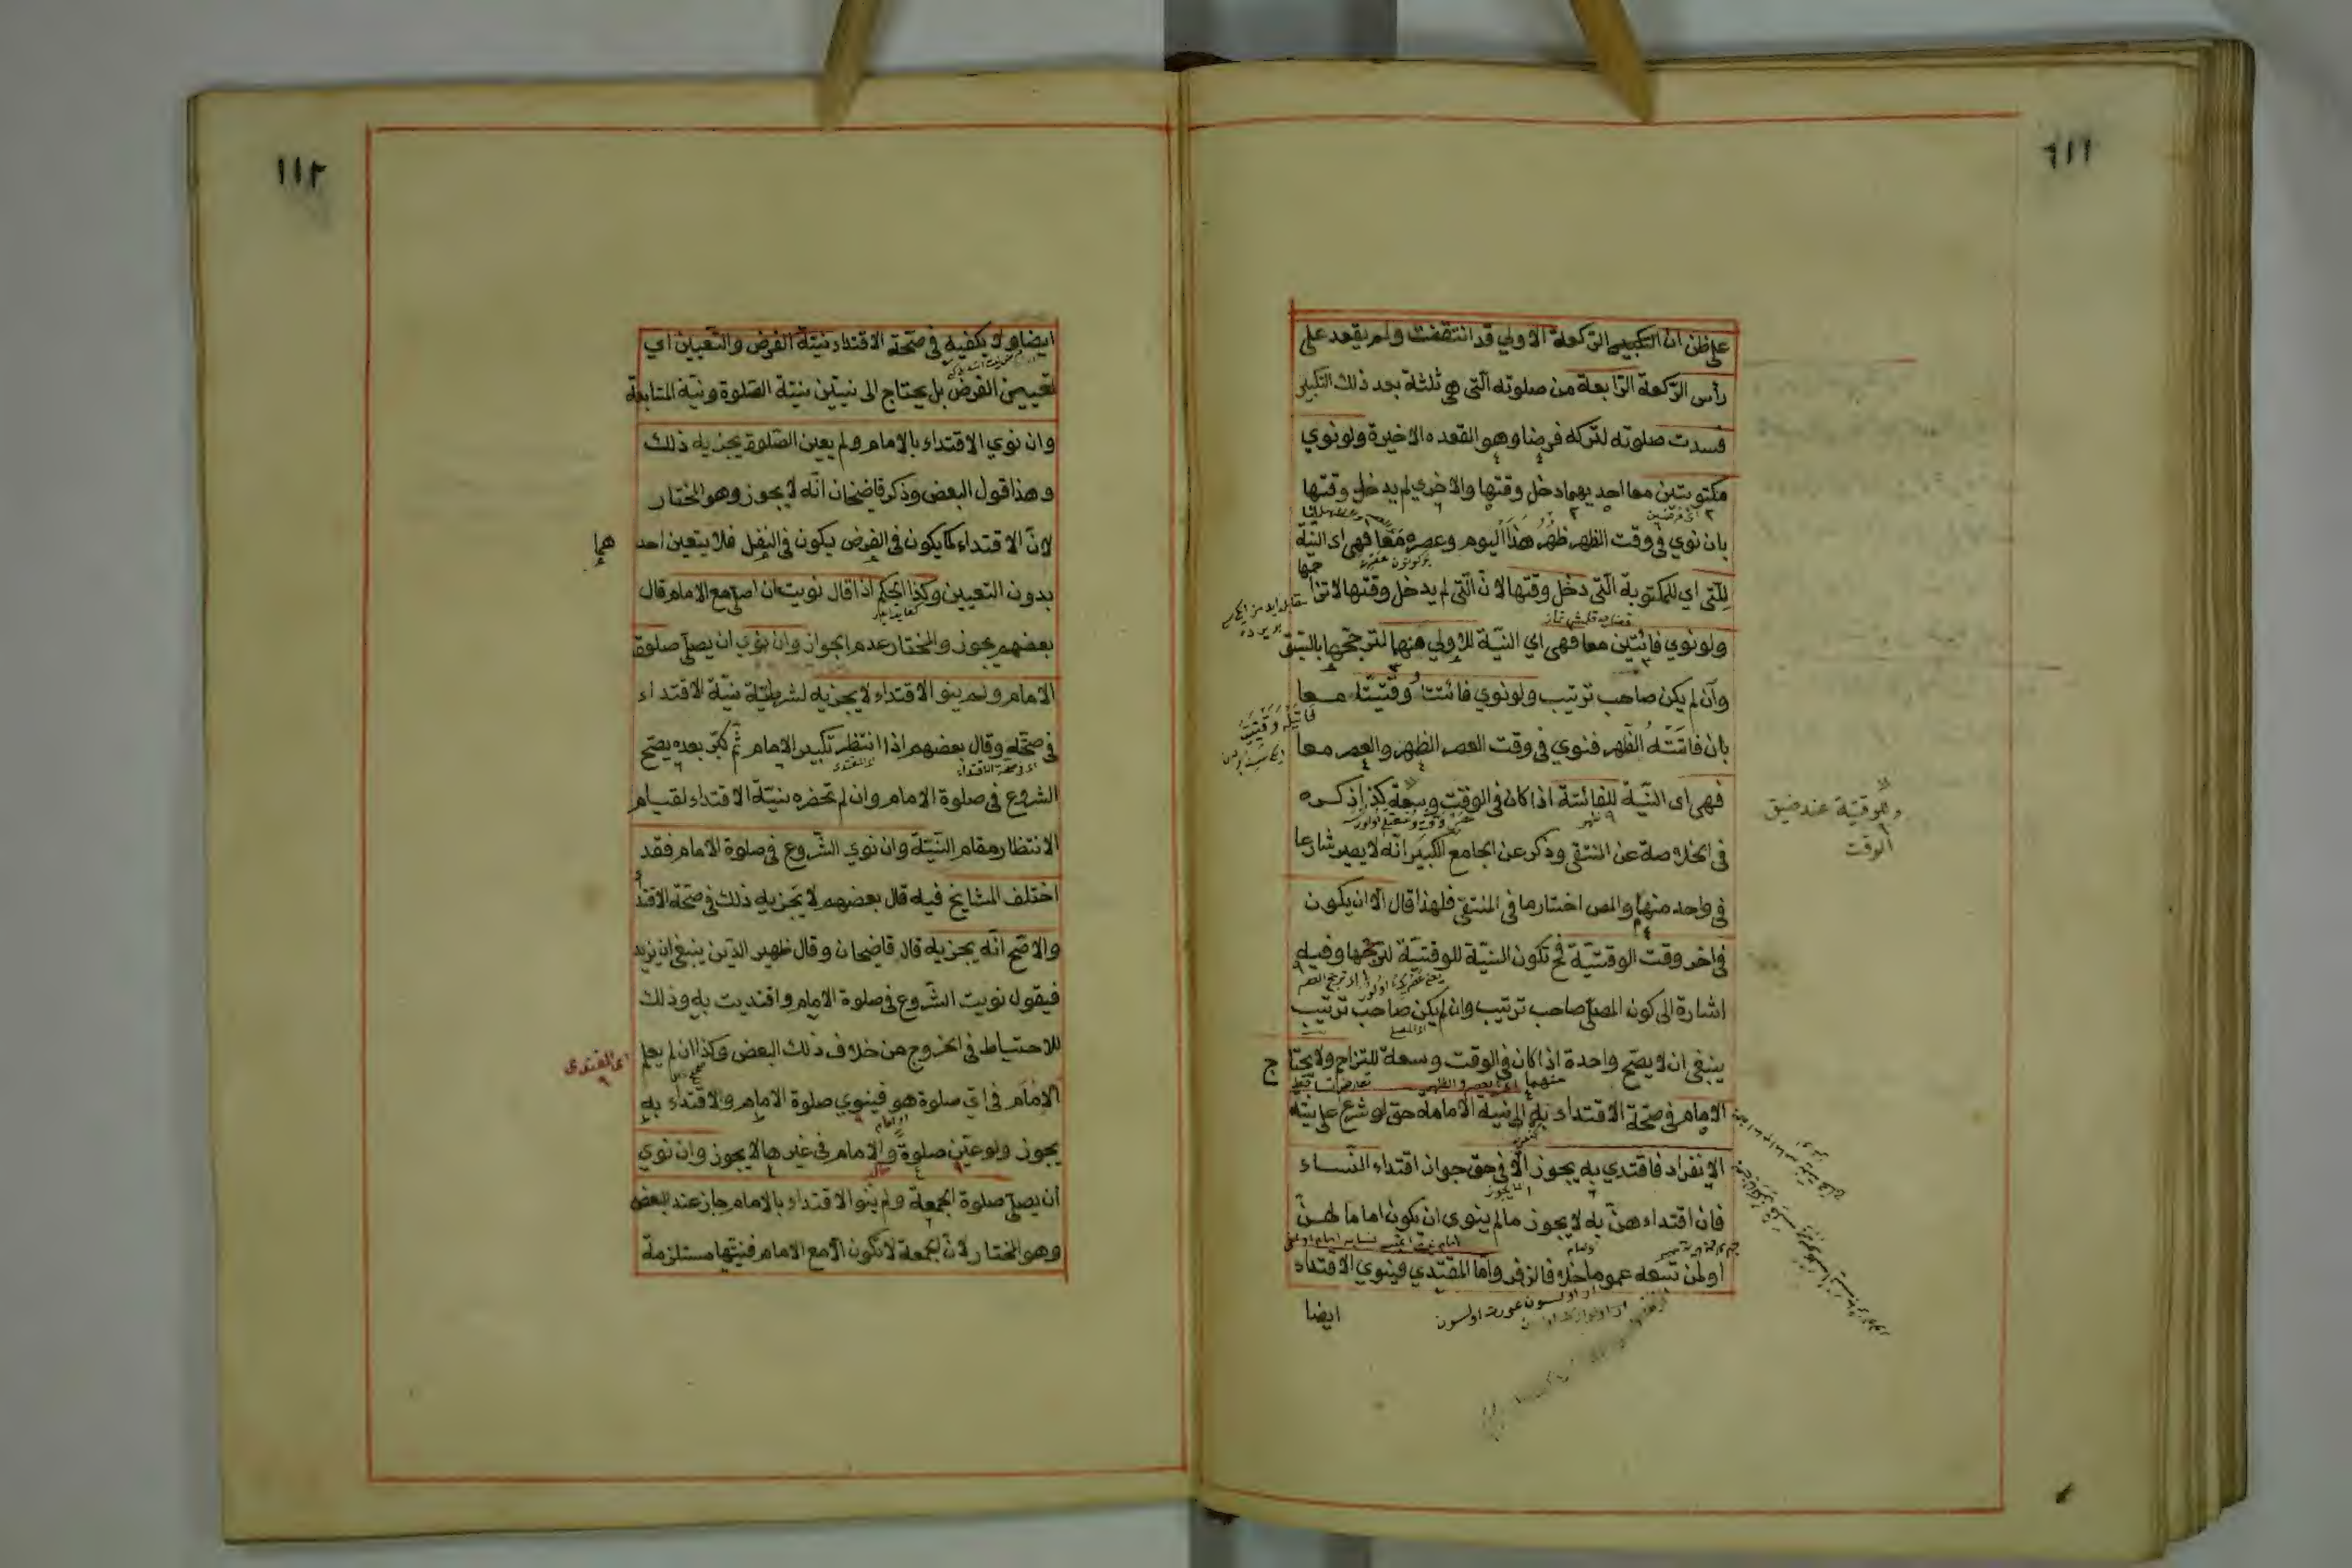 على ظن ان التكبير الركعة الاولي قد انتقضت ولم يقعد على
رأس الركعة الرّابعة من صلوته الّتى هى ثلثة بعد ذلك التكبير
فسدت صلوته لتركه فرضا وهو القعده الاخيرة ولو نوي
مكتوبتين معا احديهما دخل وقتها والاخري لم يدخل وقتها
بان نوي فى وقت الظهر ظهْر هذا اليوم وعصره معًا فهى اى النيّة
للّتى اي للمكتوبة الّتى دخل وقتها لانّ الّتى لم يدخل وقتها لاتزا
حمها
ولو نوي فائتين معا فهى اي النيّة للاولي منهما لترجّحها بالسّبق
وان لم يكن صاحب ترتيب ولو نوي فائتة وقتيّة معا
بان فاتته الظهر فنوي فى وقت العصر الظهر والعصر معا
فهى اى النيّة للفائتة اذا كان فى الوقت وسعة كذا ذكره
فى الخلاصة عن المنتقى وذكر عن الجامع الكبير انّه لا يصير شارعا
فى واحد منهما والمص اختار ما فى المنتقى فلهذا قال الّا ان يكون
فى اخر وقت الوقتيّة فح تكون النيّة للوقتيّة لترجّحها وفيه
اشارة الى كون المصلّى صاحب ترتيب وان لم يكن صاحب ترتيب
ينبغى ان لا يصحّ واحدة اذا كان فى الوقت وسعة للتزاحم ولا يحتا
ج
الامام فى صحّة الاقتداء به الى نيّة الامامة حتى لو شرع على نيّة
الانفراد فاقتدي به يجوز الّا فى حق جواز اقتداء النّساء
فان اقتداءهنّ به لا يجوز ما لم ينوى ان يكون اماما لهنّ
او لمن تبعه عموما خلافا لزفر وامّا المقتدي فينوي الاقتداء
ايضا
وللوقتيّة عند ضيق
الوقت
١١٢
ايضا ولا يكفيه فى صحّة الاقتداء نيّة الفرض والتّعيين اي
تعيين الفرض بل يحتاج الى نيتين نيّة الصّلوة ونيّة المتابعة
وان نوي الاقتداء بالامام ولم يعين الصّلوة يجزيه ذلك
وهذا قول البعض وذكر قاضيخان انّه لا يجوز وهو المختار
لانّ الاقتداء كما يكون فى الفرض يكون فى النفل فلا يتعين احد
هما
بدون التعيين وكذا الحكم اذا قال نويت ان اصلّى مع الامام قال
بعضهم يجوز والمختار عدم الجواز وان نوي ان يصلّى صلوة
الامام ولم ينو الاقتداء لا يجزيه لشرطيّة نيّة الاقتداء
فى صحّته وقال بعضهم اذا انتظر تكبير الامام ثمّ كبّر بعده يصحّ
الشروع فى صلوة الامام وان لم تحضره نيّة الاقتداء لقيام
الانتظار مقام النّيّة وان نوي الشّروع فى صلوة الامام فقد
اختلف المشايخ فيه قال بعضهم لا يجزيه ذلك فى صحّة الاقتدا
والاصّح انّه يجزيه قال قاضيخان وقال ظهير الدّين ينبغى ان يزيد
فيقول نويت الشّروع فى صلوة الامام واقتديت به وذلك
للاحتياط فى الخروج من خلاف ذلك البعض وكذا ان لم يعلم
اى المقتدى
الامام فى ايّ صلوة هو فينوي صلوة الامام والاقتداء به
يجوز ولو عيّن صلوة والامام فى غيرها لا يجوز وان نوي
أن يصلّى صلوة الجمعة ولم ينو الاقتداء بالامام جاز عند البعض
وهو المختار لانّ الجمعة لا تكون الّا مع الامام فنيتها مستلزمة